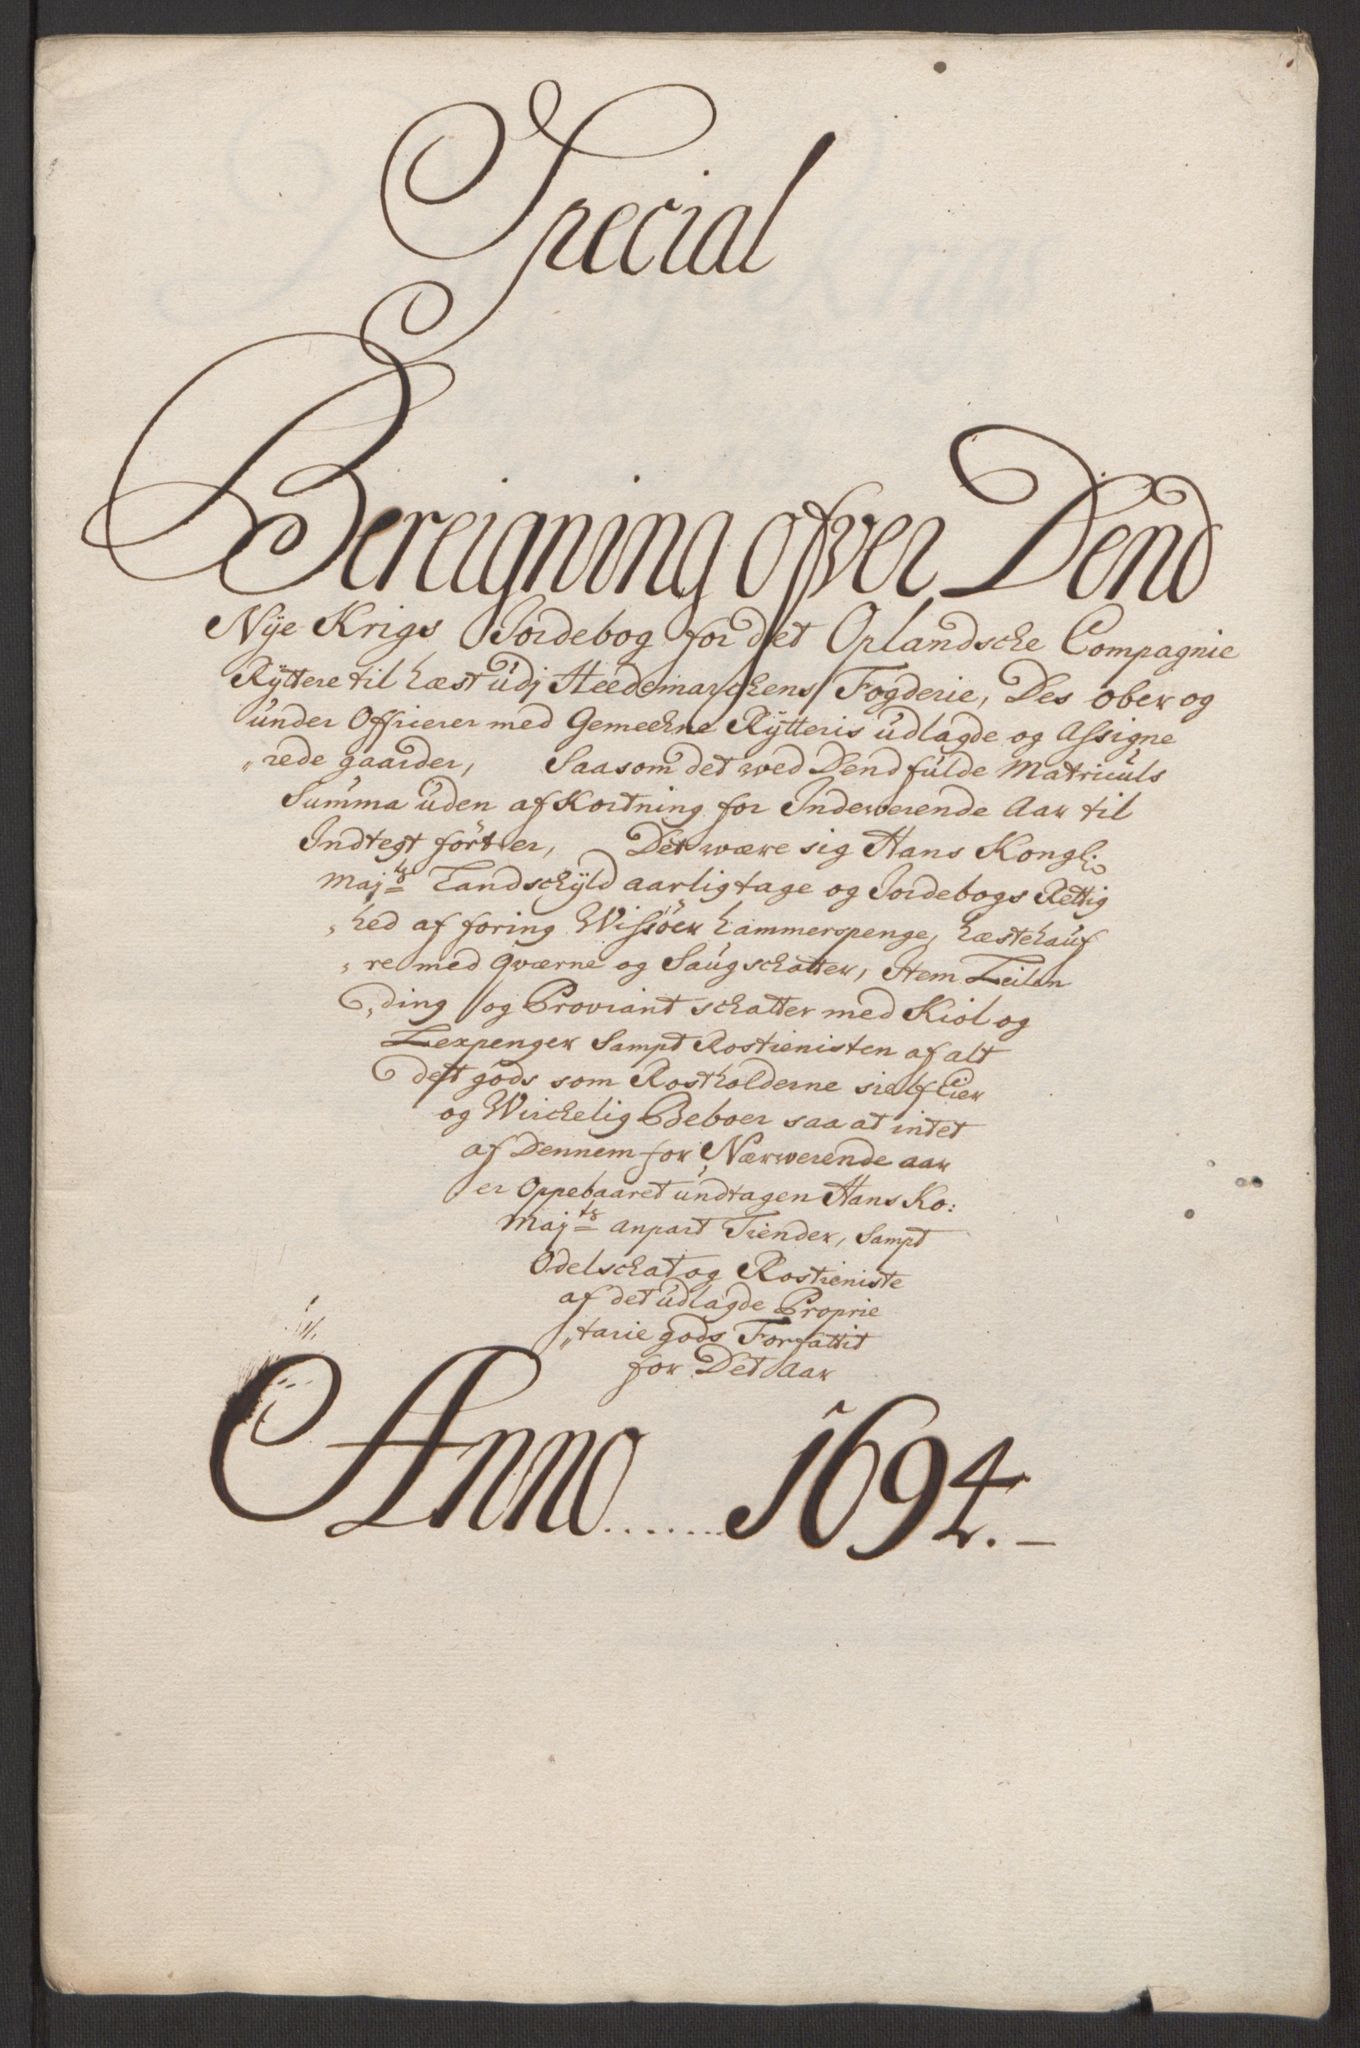 Special
Bereigning ofver Dend
Nÿe Krigs Jordebog for det Oplandsche Compagnie
Rÿttere til hæst udj Heedemarchens Fogderie, Des ober og
under Officerer med Gemeene Rÿtteris udlagde og Assigne
„rede gaarder, Saasom det wed Dend fulde Matriculs
Summa uden afkortning for Indewerende Aar til
Indtegt fört er, Det være sig Hans Kongl:
Maj:ts Landschÿld aarligtage og Jordebogs Rettig
„hed af foring Wissöer hammerspenge, hæstehauf
„re med Qværne og Saugschatter, Item Leilen
„ding og Proviant schatter med Kiöl og
Lexpenger Sampt Rostienisten af alt
det gods som Rostholderne sielf Eier
og Wirchelig Beboer saa at intet
af Dennem for Nærwerende aar
er Oppebaaret undtagen Hans Ko:
Maj:ts anpart Tiender, Sampt
Odelschat og Rostieniste
af det udlagde Proprie
„tarie gods Forfattit
for Det Aar
Anno ....... 1694.